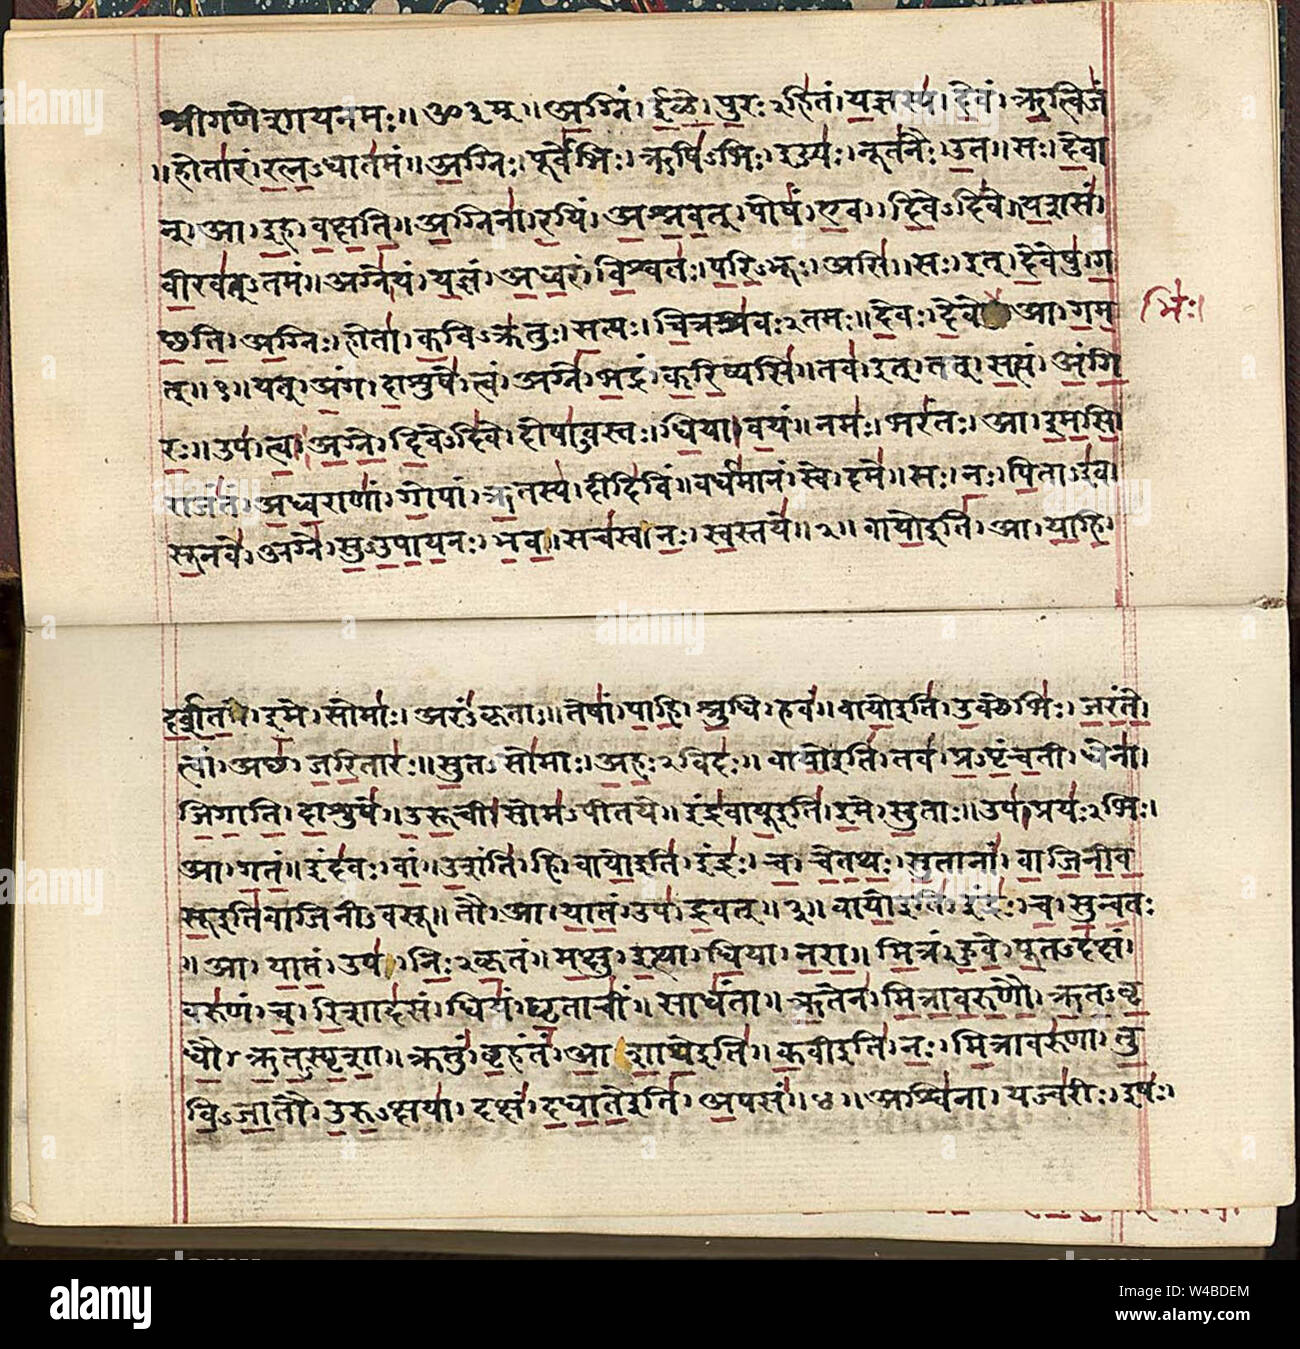 श्रीगणेशायनमः॥ॐ३म्॥अ॒ग्निं।ई॒ळे॒।पु॒रः२हि॑तं।य॒ज्ञस्य॑।दे॒वं।ऋ॒त्विजं॑
॥होता॑रं।र॒त्न॒ऽधात॑मं॥अ॒ग्निः।पूर्वे॑भिः।ऋषि॑ऽभिः।ईड्यः॑।नूत॑नैः।उ॒त॥सः।दे॒वा
न्।आ।इ॒ह।व॒क्ष॒ति॒॥अ॒ग्निना॑।र॒यिं।अ॒श्न॒व॒त्।पोषं॑।ए॒व।दि॒वेऽदि॑वे।य॒शसं॑।
वी॒रव॑त्ऽतमं॥अग्ने॑।यं।य॒ज्ञं।अ॒ध्व॒रं।वि॒श्वतः॑।प॒रि॒ऽभूः।असि॑॥सः।इत्।दे॒वेषु॑।ग
च्छ॒ति॒।अ॒ग्निः।होता॑।क॒विऽक्र॑तुः।स॒त्यः।चि॒त्रश्र॑वः२तमः॥दे॒वः।दे॒वे आ।ग॒म॒
भिः॑।
त्॥१॥यत्।अं॒ग।दा॒शुषे॑।त्वं।अग्ने॑।भ॒द्रं।क॒रि॒ष्यसि॑॥तव॑।इत्।तत्।स॒त्यं।अं॒गि॒
रः॒॥उप॑।त्वा॒।अ॒ग्ने॒।दि॒वेऽदि॑वे।दोषा॑ऽवस्तः।धि॒या।व॒यं॥नमः॑।भरं॑तः।आ।इ॒म॒सि॒।
राजं॑तं।अ॒ध्व॒राणां॑।गो॒पां।ऋ॒तस्य॑।दीदि॑विं॥वर्ध॑मानं।स्वे।दमे॑॥सः।नः॒।पि॒ताऽइ॑व
सू॒नवे॑।अग्ने॑।सु॒ऽउ॒पा॒य॒नः।भ॒व॒॥सच॑स्व।नः॒।स्व॒स्तये॑॥२॥वायो॒इति॑।आ।या॒हि॒।
द॒र्श॒त॒।इ॒मे।सोमाः॑।अरं॑ऽकृताः॥तेषां॑।पा॒हि॒।श्रु॒धि।हवं॑॥वायो॒इति॑।उ॒क्थेभिः॑।ज॒रं॒ते॒।
त्वां।अच्छ॑।ज॒रि॒तारः॑॥सु॒तऽसो॑माः।अ॒हः॒२विदः॑॥वायो॒इति॑।तव॑।प्र॒ऽपृं॒च॒ती।धेना॑।
जि॒गा॒ति॒।दा॒शुषे॑॥उ॒रू॒ची।सोम॑ऽपीतये॥इंद्र॑वायू॒इति॑।इ॒मे।सु॒ताः॥उप॑।प्रयः॑२भिः।
आ।ग॒तं॒॥इंद॑वः।वां॒।उ॒शंति॑।हि॥वायो॒इति॑।इंद्रः॑।च॒।चे॒त॒थः॒।सु॒तानां॑।वा॒जि॒नी॒व॒
सू॒इति॑वाजिनीऽवसू॥तौ।आ।या॒तं॒।उप॑।द्र॒वत्॥३॥वायो॒इति॑।इंद्रः॑।च॒।सु॒न्व॒तः
॥आ।या॒तं॒।उप॑।निः॒२कृ॒तं॥म॒क्षु।इ॒त्था।धि॒या।न॒रा॒॥मि॒त्रं।हु॒वे॒।पू॒तऽद॑क्षं।
वरु॑णं।च॒।रि॒शाद॑सं।धियं॑।घृ॒ताचीं॑।साधं॑ता॥ऋ॒तेन॑।मि॒त्रा॒व॒रु॒णौ॒।ऋ॒त॒ऽवृ॒
धौ॒।ऋ॒त॒ऽस्पृ॒शा॒॥क्रतुं॑।बृ॒हंतं॑।आ॒शा॒थे॒इति॑॥क॒वीइति॑।नः॒।मि॒त्रावरु॑णा।तु॒
वि॒ऽजा॒तौ।उ॒रु॒ऽक्षया॑।दक्षं॑।द॒धा॒ते॒इति॑।अ॒पसं॑॥४॥अश्वि॑ना।यज्व॑रीः।इषः॑।
alamy
Image ID: W4BDEM
www.alamy.com